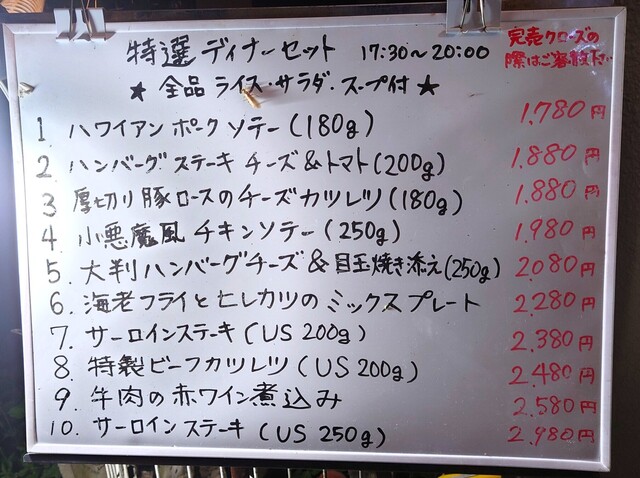 特選 ディナーセット 17:30～20:00
完売クローズの
際はご容赦下さい
★ 全品 ライス・サラダ・スープ付 ★
1 ハワイアン ポーク ソテー (180g) 1.780円
2 ハンバーグ ステーキ チーズ & トマト (200g) 1.880円
3 厚切り 豚ロースのチーズカツレツ (180g) 1.880円
4 小悪魔風 チキンソテー (250g) 1.980円
5. 大判ハンバーグチーズ & 目玉焼き添え (250g) 2.080円
6. 海老フライとヒレカツの ミックスプレート 2.280円
7. サーロインステーキ (US 200g) 2.380円
8 特製ビーフカツレツ (US 200g) 2.480円
9 牛肉の赤ワイン煮込み 2.580円
10. サーロイン ステーキ (US 250g) 2.980円